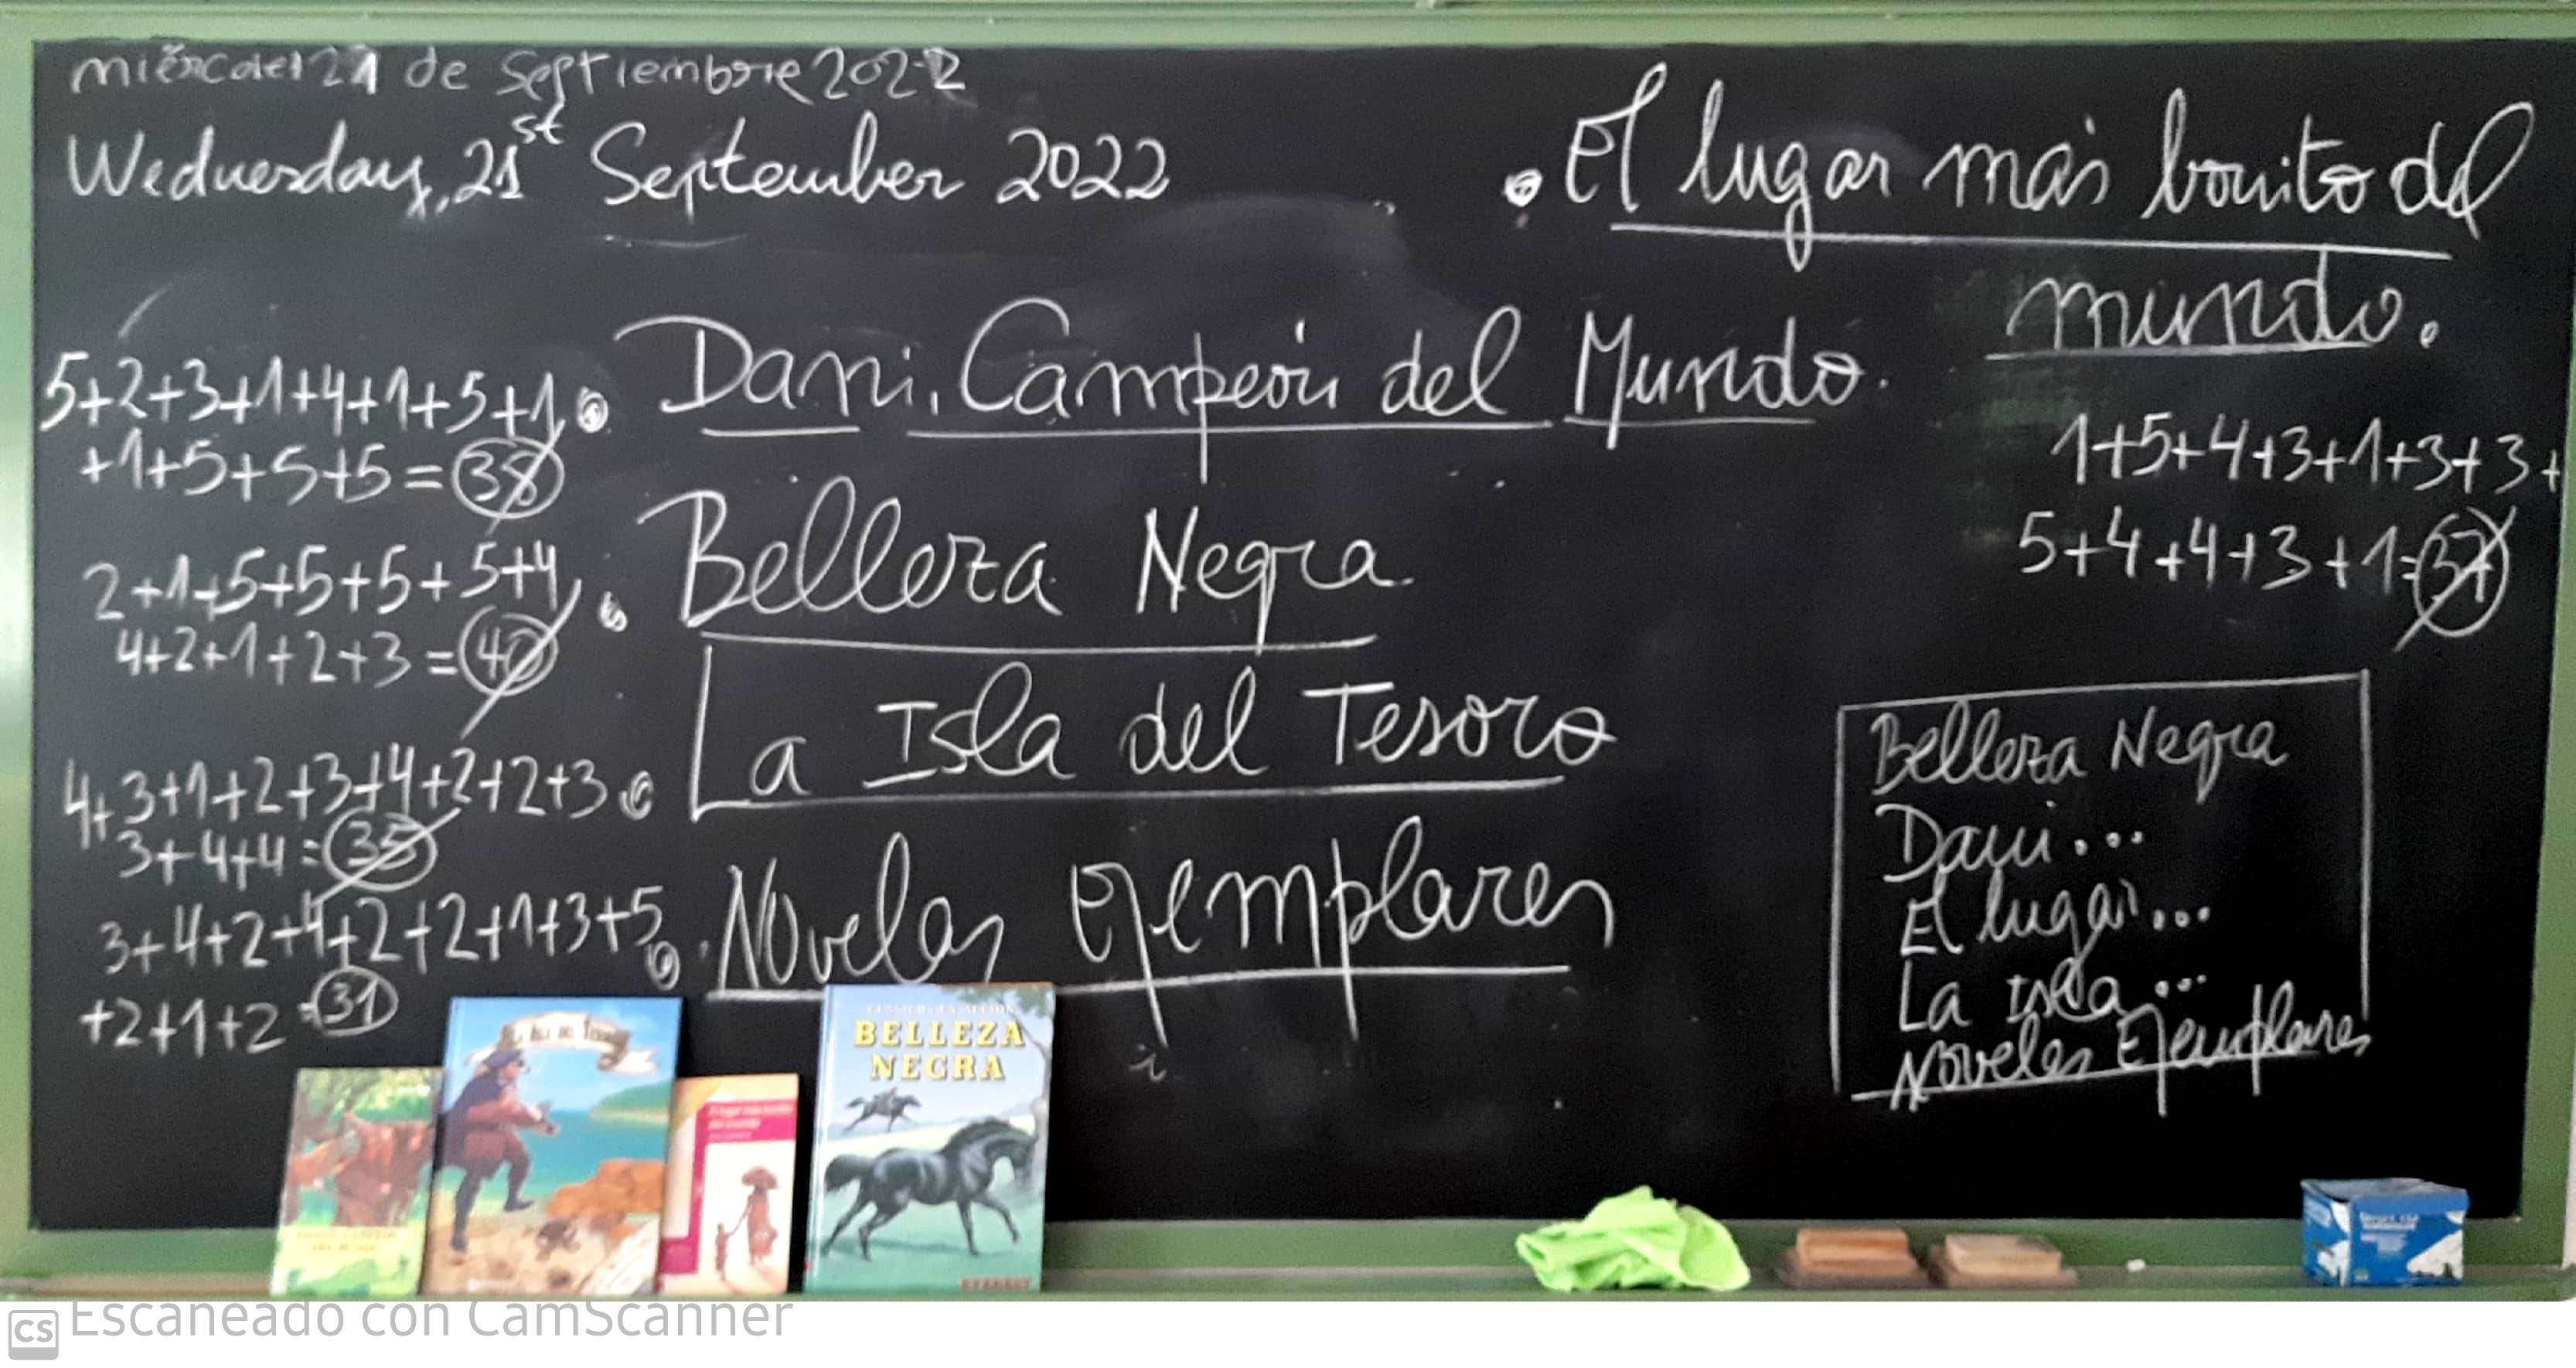 miércoles 21 de septiembre 2022
Wednesday, 21st September 2022
. El lugar más bonito del
mundo.
1+5+4+3+1+3+3+
5+4+4+3+1=37
5+2+3+1+4+1+5+1
+1+5+5+5=38
Dani, Campeón del Mundo.
2+1+5+5+5+5+4
4+2+1+2+3=40
Belleza Negra
4+3+1+2+3+4+2+2+3
3+4+4=35
La Isla del Tesoro
3+4+2+4+2+2+1+3+5
+2+1+2=31
Novelas Ejemplares
Belleza Negra
Dani...
El lugar...
La Isla...
Novelas Ejemplares
La Isla del Tesoro
El lugar más bonito
del mundo
CLÁSICOS EN ACCIÓN
BELLEZA
NEGRA
EVEREST
CS Escaneado con CamScanner